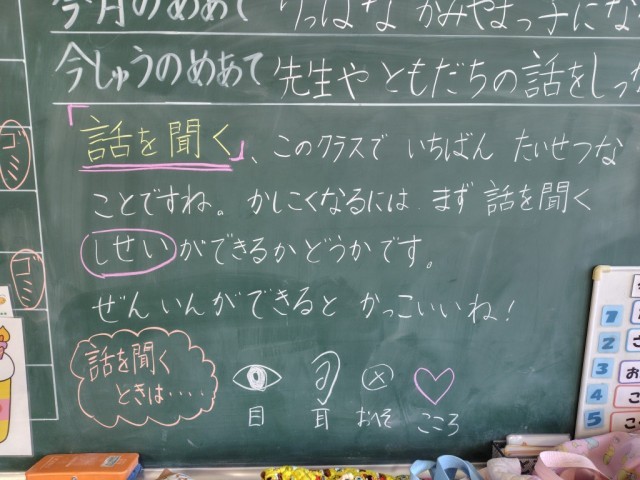 今月のめあて りっぱな かみやまっ子にな
今しゅうのめあて 先生や ともだちの話をしっか
「話を聞く」、このクラスで いちばん たいせつな
ことですね。かしこくなるには まず 話を聞く
しせいができるかどうかです。
ぜんいんができると かっこいいね!
話を聞く
ときは・・・・
目 耳 おへそ こころ
ゴミ
ゴミ
1
2 さ
3 お
4 こ
5